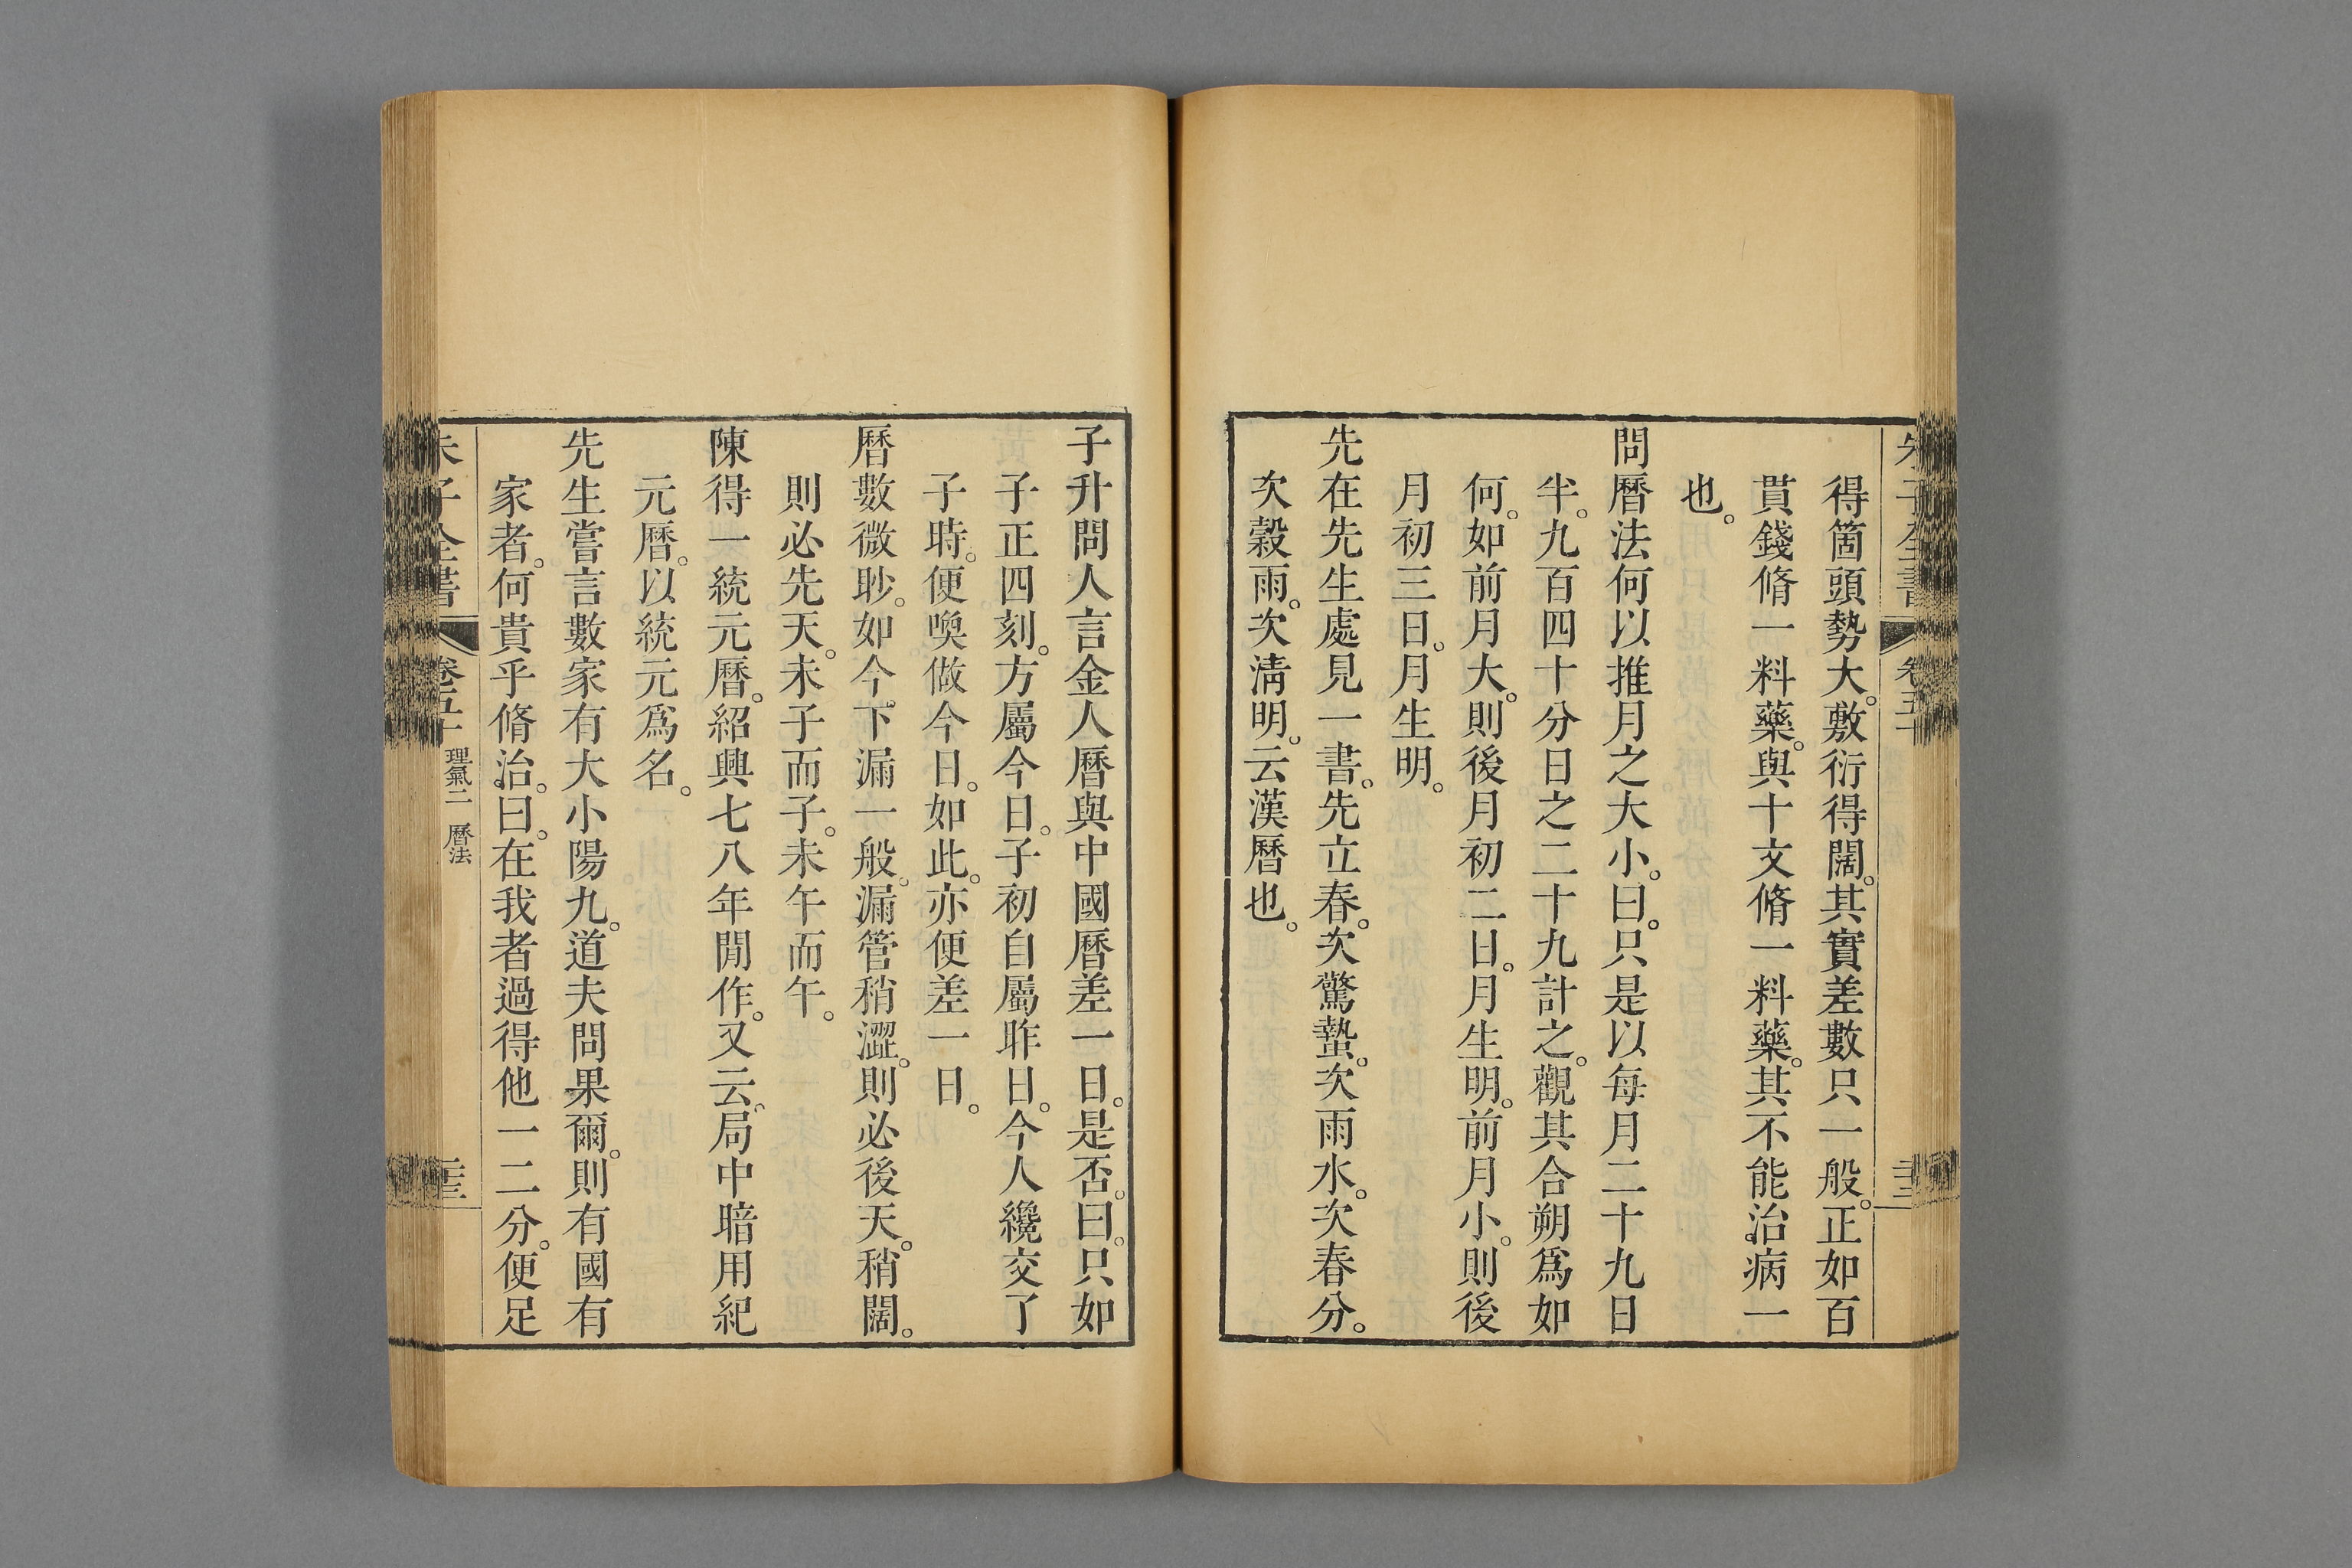 得箇頭勢大。敷衍得闊。其實差數只一般。正如百
貫錢脩一料藥。與十文脩一料藥。其不能治病一
也。
問曆法何以推月之大小。曰。只是以每月二十九日
半。九百四十分日之二十九計之。觀其合朔爲如
何。如前月大。則後月初二日。月生明。前月小。則後
月初三日。月生明。
先在先生處見一書。先立春。次驚蟄。次雨水。次春分。
次穀雨。次淸明。云漢曆也。
子升問人言金人曆與中國曆差一日。是否。曰。只如
子正四刻。方屬今日。子初自屬昨日。今人纔交了
子時。便喚做今日。如此。亦便差一日。
曆數微眇。如今。下漏一般。漏管稍澀。則必後天。稍闊。
則必先天。未子而子。未午而午。
陳得一統元曆。紹興七八年閒作。又云。局中暗用紀
元曆。以統元爲名。
先生嘗言數家有大小陽九。道夫問果爾。則有國有
家者。何貴乎脩治。曰。在我者過得他一二分。便足
朱子全書
卷五十
理氣二 曆法